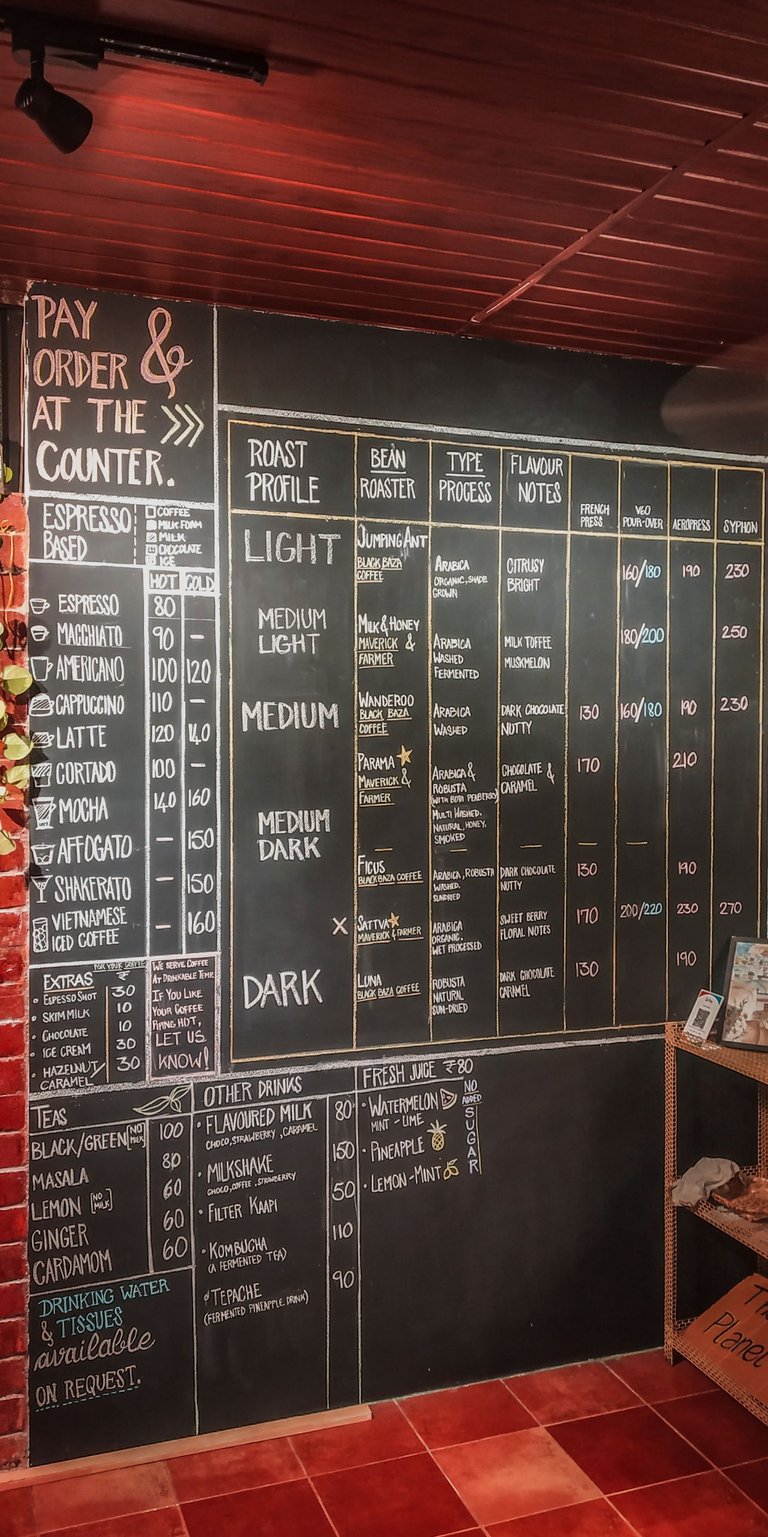 PAY &
ORDER
AT THE >>>
COUNTER.
ESPRESSO
BASED
COFFEE
MILK FOAM
MILK
CHOCOLATE
ICE
HOT COLD
ESPRESSO 80
MACCHIATO 90 –
AMERICANO 100 120
CAPPUCCINO 110 –
LATTE 120 140
CORTADO 100 –
MOCHA 140 160
AFFOGATO – 150
SHAKERATO – 150
VIETNAMESE
ICED COFFEE – 160
EXTRAS FOR YOUR COFFEE ₹
• ESPRESSO SHOT 30
• SKIM MILK 10
• CHOCOLATE 10
• ICE CREAM 30
• HAZELNUT/
CARAMEL 30
WE SERVE COFFEE
AT DRINKABLE TEMP.
IF YOU LIKE
YOUR COFFEE
PIPING HOT,
LET US
KNOW!
ROAST
PROFILE
BEAN
ROASTER
TYPE
PROCESS
FLAVOUR
NOTES
FRENCH
PRESS
V60
POUR-OVER
AEROPRESS
SYPHON
LIGHT
JUMPING ANT
BLACK BAZA
COFFEE
ARABICA
ORGANIC, SHADE
GROWN
CITRUSY
BRIGHT
160/180 190 230
MEDIUM
LIGHT
MILK & HONEY
MAVERICK &
FARMER
ARABICA
WASHED
FERMENTED
MILK TOFFEE
MUSKMELON
180/200 250
MEDIUM
WANDEROO
BLACK BAZA
COFFEE
ARABICA
WASHED
DARK CHOCOLATE
NUTTY
130 160/180 190 230
PARAMA
MAVERICK &
FARMER
ARABICA &
ROBUSTA
(WITH BOTH PEABERRY)
MULTI WASHED,
NATURAL, HONEY,
SMOKED
CHOCOLATE &
CARAMEL
170 210
MEDIUM
DARK
FICUS
BLACK BAZA COFFEE
ARABICA, ROBUSTA
WASHED.
SUNDRIED
DARK CHOCOLATE
NUTTY
130 190
X SATTVA
MAVERICK & FARMER
ARABICA
ORGANIC.
WET PROCESSED
SWEET BERRY
FLORAL NOTES
170 200/220 230 270
DARK
LUNA
BLACK BAZA COFFEE
ROBUSTA
NATURAL
SUN-DRIED
DARK CHOCOLATE
CARAMEL
130 190
TEAS
BLACK/GREEN [NO MILK] 100
MASALA 80
LEMON [NO MILK] 60
GINGER 60
CARDAMOM 60
DRINKING WATER
& TISSUES
available
ON REQUEST.
OTHER DRINKS
• FLAVOURED MILK 80
CHOCO, STRAWBERRY, CARAMEL
• MILKSHAKE 150
CHOCO, COFFEE, STRAWBERRY
• FILTER KAAPI 50
• KOMBUCHA 110
(A FERMENTED TEA)
TEPACHE 90
(FERMENTED PINEAPPLE DRINK)
FRESH JUICE ₹80
• WATERMELON
MINT - LIME
• PINEAPPLE
• LEMON-MINT
NO
ADDED
SUGAR
Planet